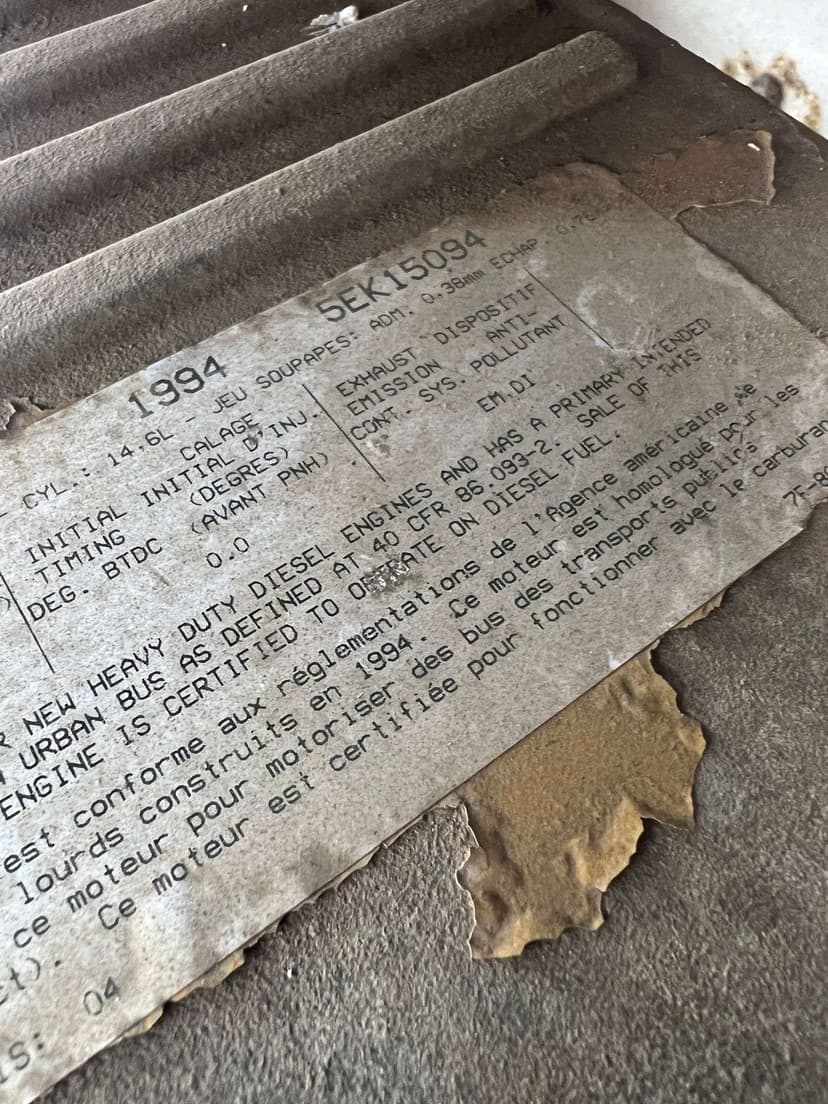 1994 5EK15094
CYL.: 14.6L - JEU SOUPAPES: ADM. 0.38mm ECHAP.
CALAGE EXHAUST DISPOSITIF
INITIAL INITIAL D'INJ. EMISSION ANTI-
TIMING (DEGRES) CONT. SYS. POLLUTANT
DEG. BTDC (AVANT PNH)
0.0 EM,DI
NEW HEAVY DUTY DIESEL ENGINES AND HAS A PRIMARY INTENDED
URBAN BUS AS DEFINED AT 40 CFR 86.093-2. SALE OF THIS
ENGINE IS CERTIFIED TO OPERATE ON DIESEL FUEL.
est conforme aux réglementations de l'Agence américaine de
lourds construits en 1994. Ce moteur est homologué pour les
ce moteur pour motoriser des bus des transports publics
Ce moteur est certifiée pour fonctionner avec le
04